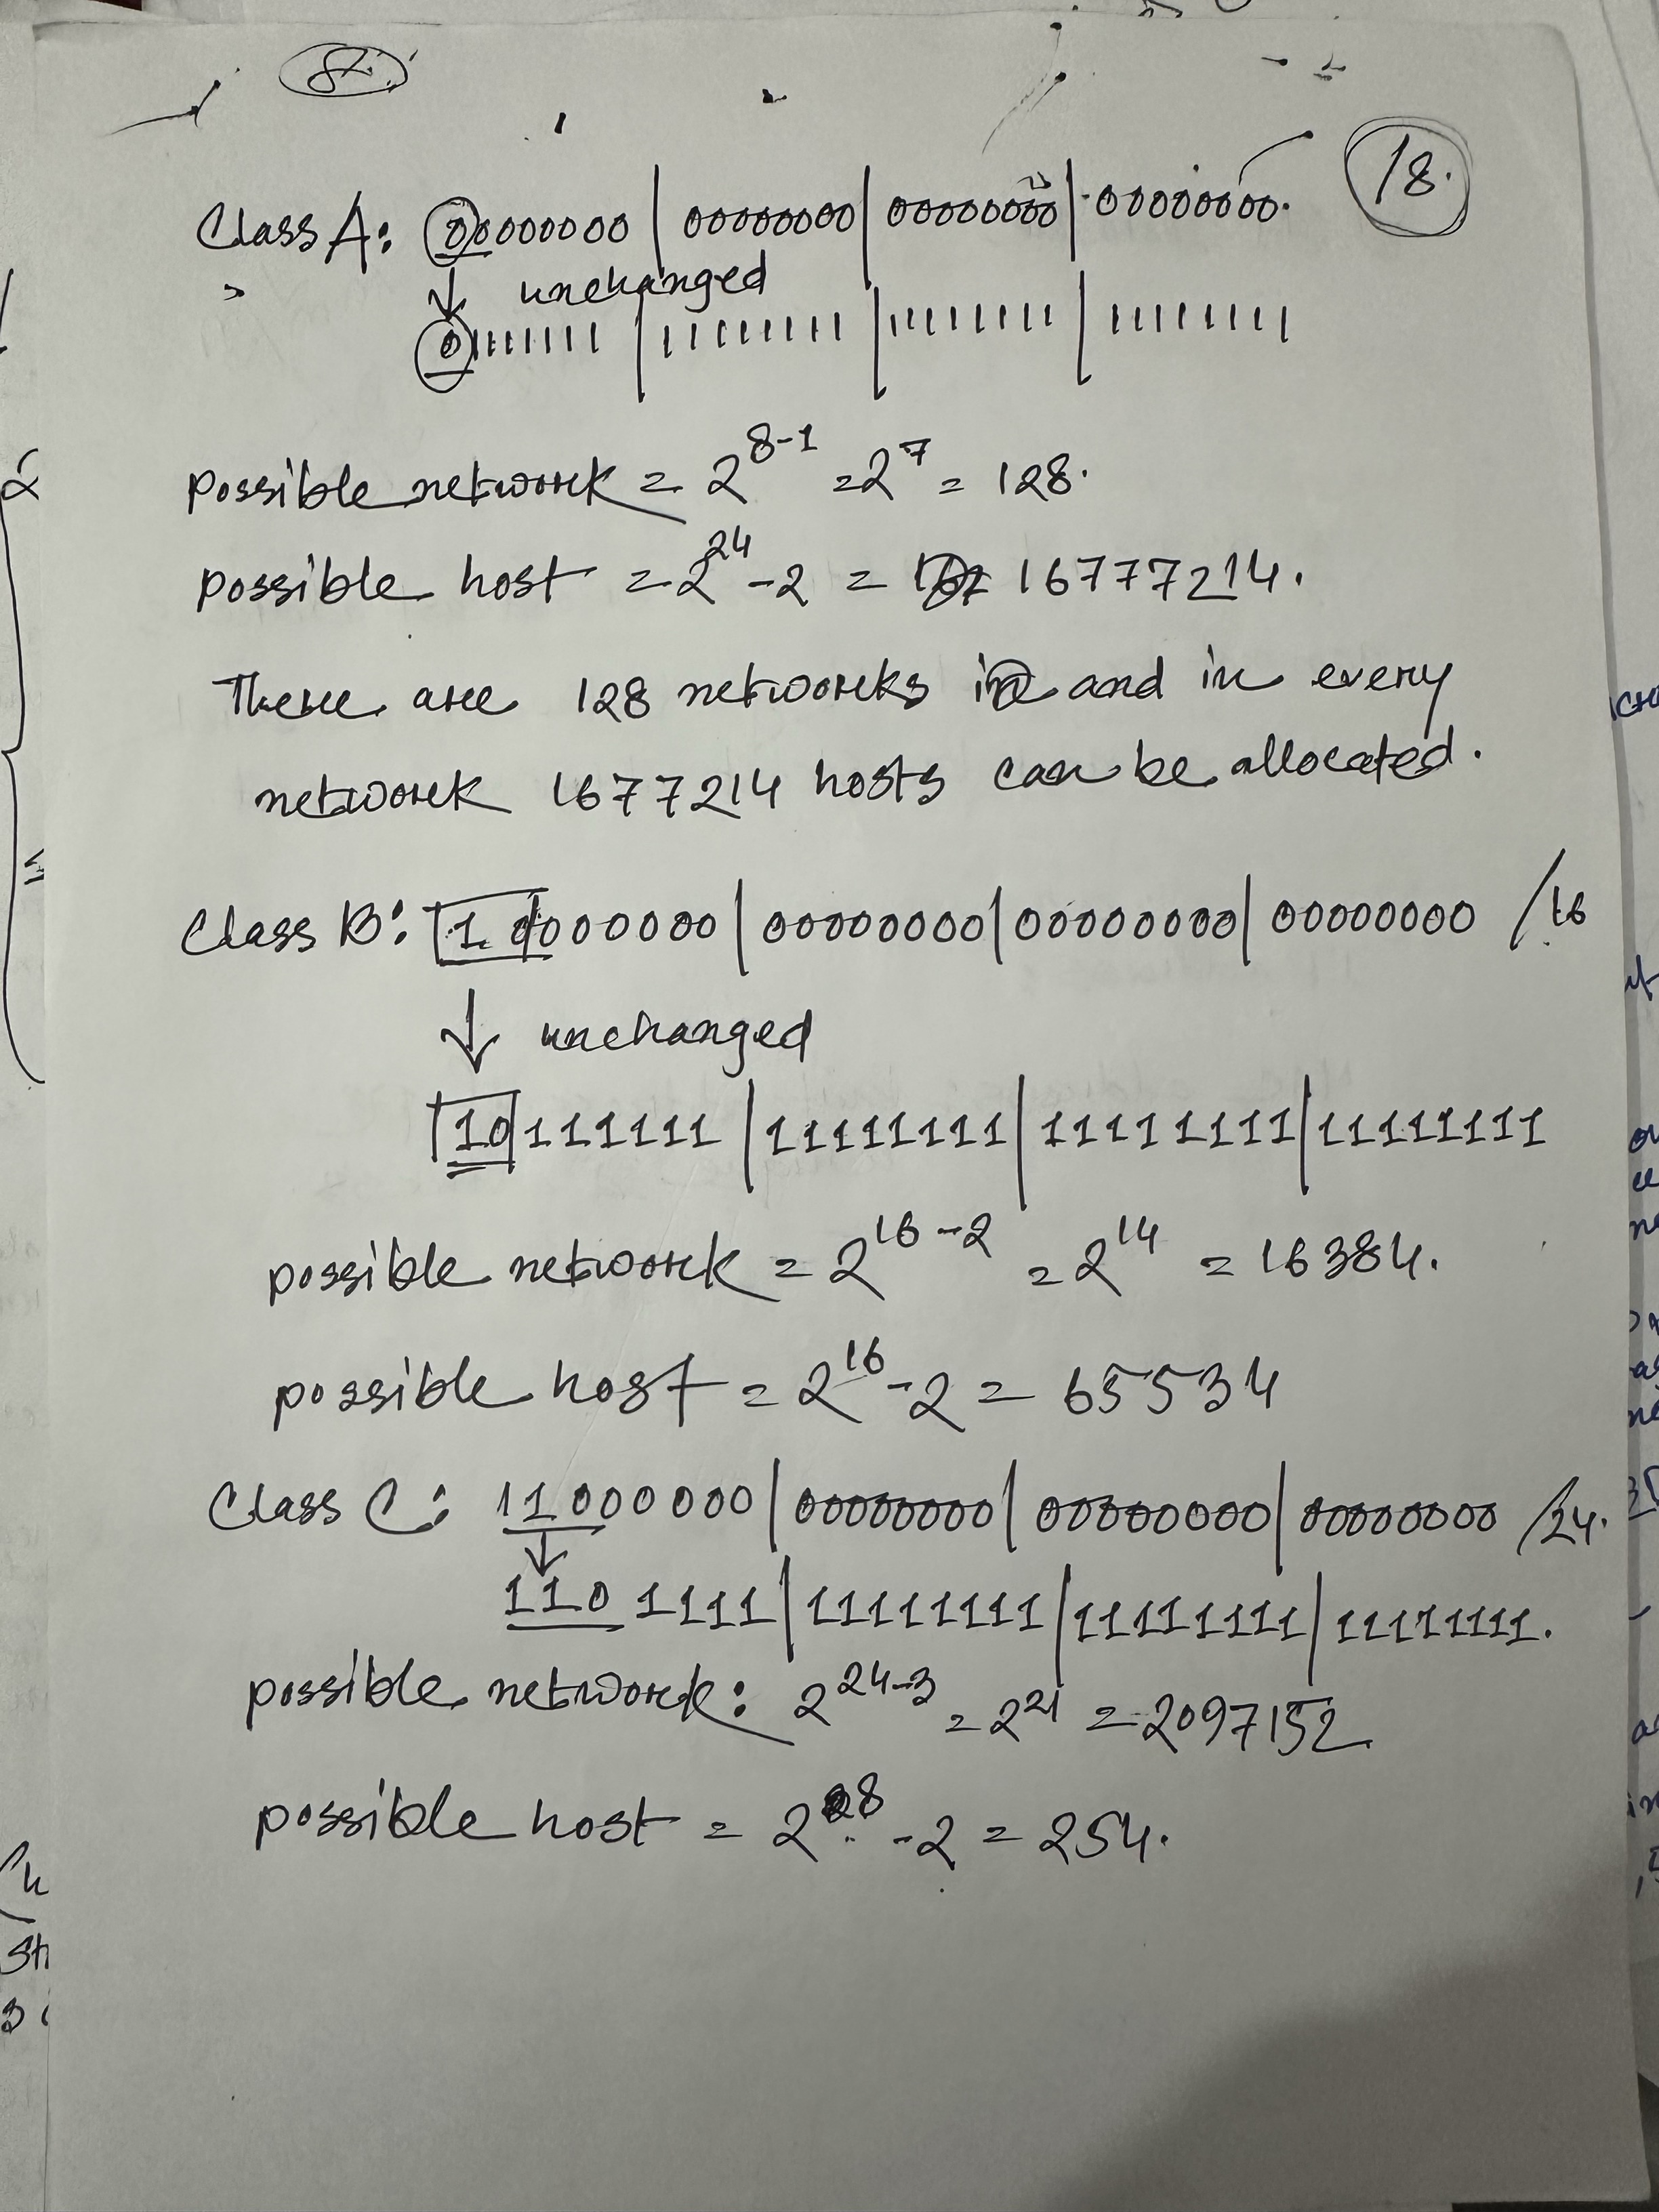 /8.
Class A: 00000000 | 00000000 | 00000000 | 00000000.
↓ unchanged
01111111 | 11111111 | 11111111 | 11111111
possible network = 2^8-1 = 2^7 = 128.
possible host = 2^24 - 2 = 16777214.
There are 128 networks in and in every
network 1677214 hosts can be allocated.
Class B: 10000000 | 00000000 | 00000000 | 00000000 /16
↓ unchanged
10111111 | 11111111 | 11111111 | 11111111
possible network = 2^16-2 = 2^14 = 16384.
possible host = 2^16 - 2 = 65534
Class C: 11000000 | 00000000 | 00000000 | 00000000 /24.
↓
1101111 | 11111111 | 11111111 | 11111111.
possible network: 2^24-3 = 2^21 = 2097152
possible host = 2^8 - 2 = 254.